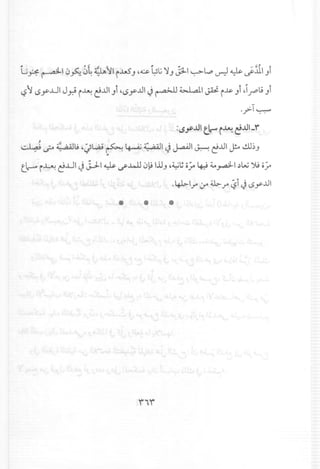 أو المُدَّعى عليه ليس صاحب الحقّ ولا نائباً عنه، وكعدم الأهليَّة بأن يكون الخصم مجنوناً
أو قاصراً، أو عدم تحقق المصلحة للخصم في الدعوى، أو الدفع بعدم قبول الدعوى لأي
سبب آخر.
٣ـ الدفع بعدم سماع الدعوى:
وذلك مثل الدفع بسبق الفصل في القضيَّة نفسها بحكم قضائيّ، فالقضيَّة متى فُصِلت
مرّة فلا تعاد الخصومة فيها مرّة ثانية، ولذا فإن للمدعى عليه الحقّ في الدفع بعدم سماع
الدعوى في أيّ مرحلة من مراحلها.
٣٦٣